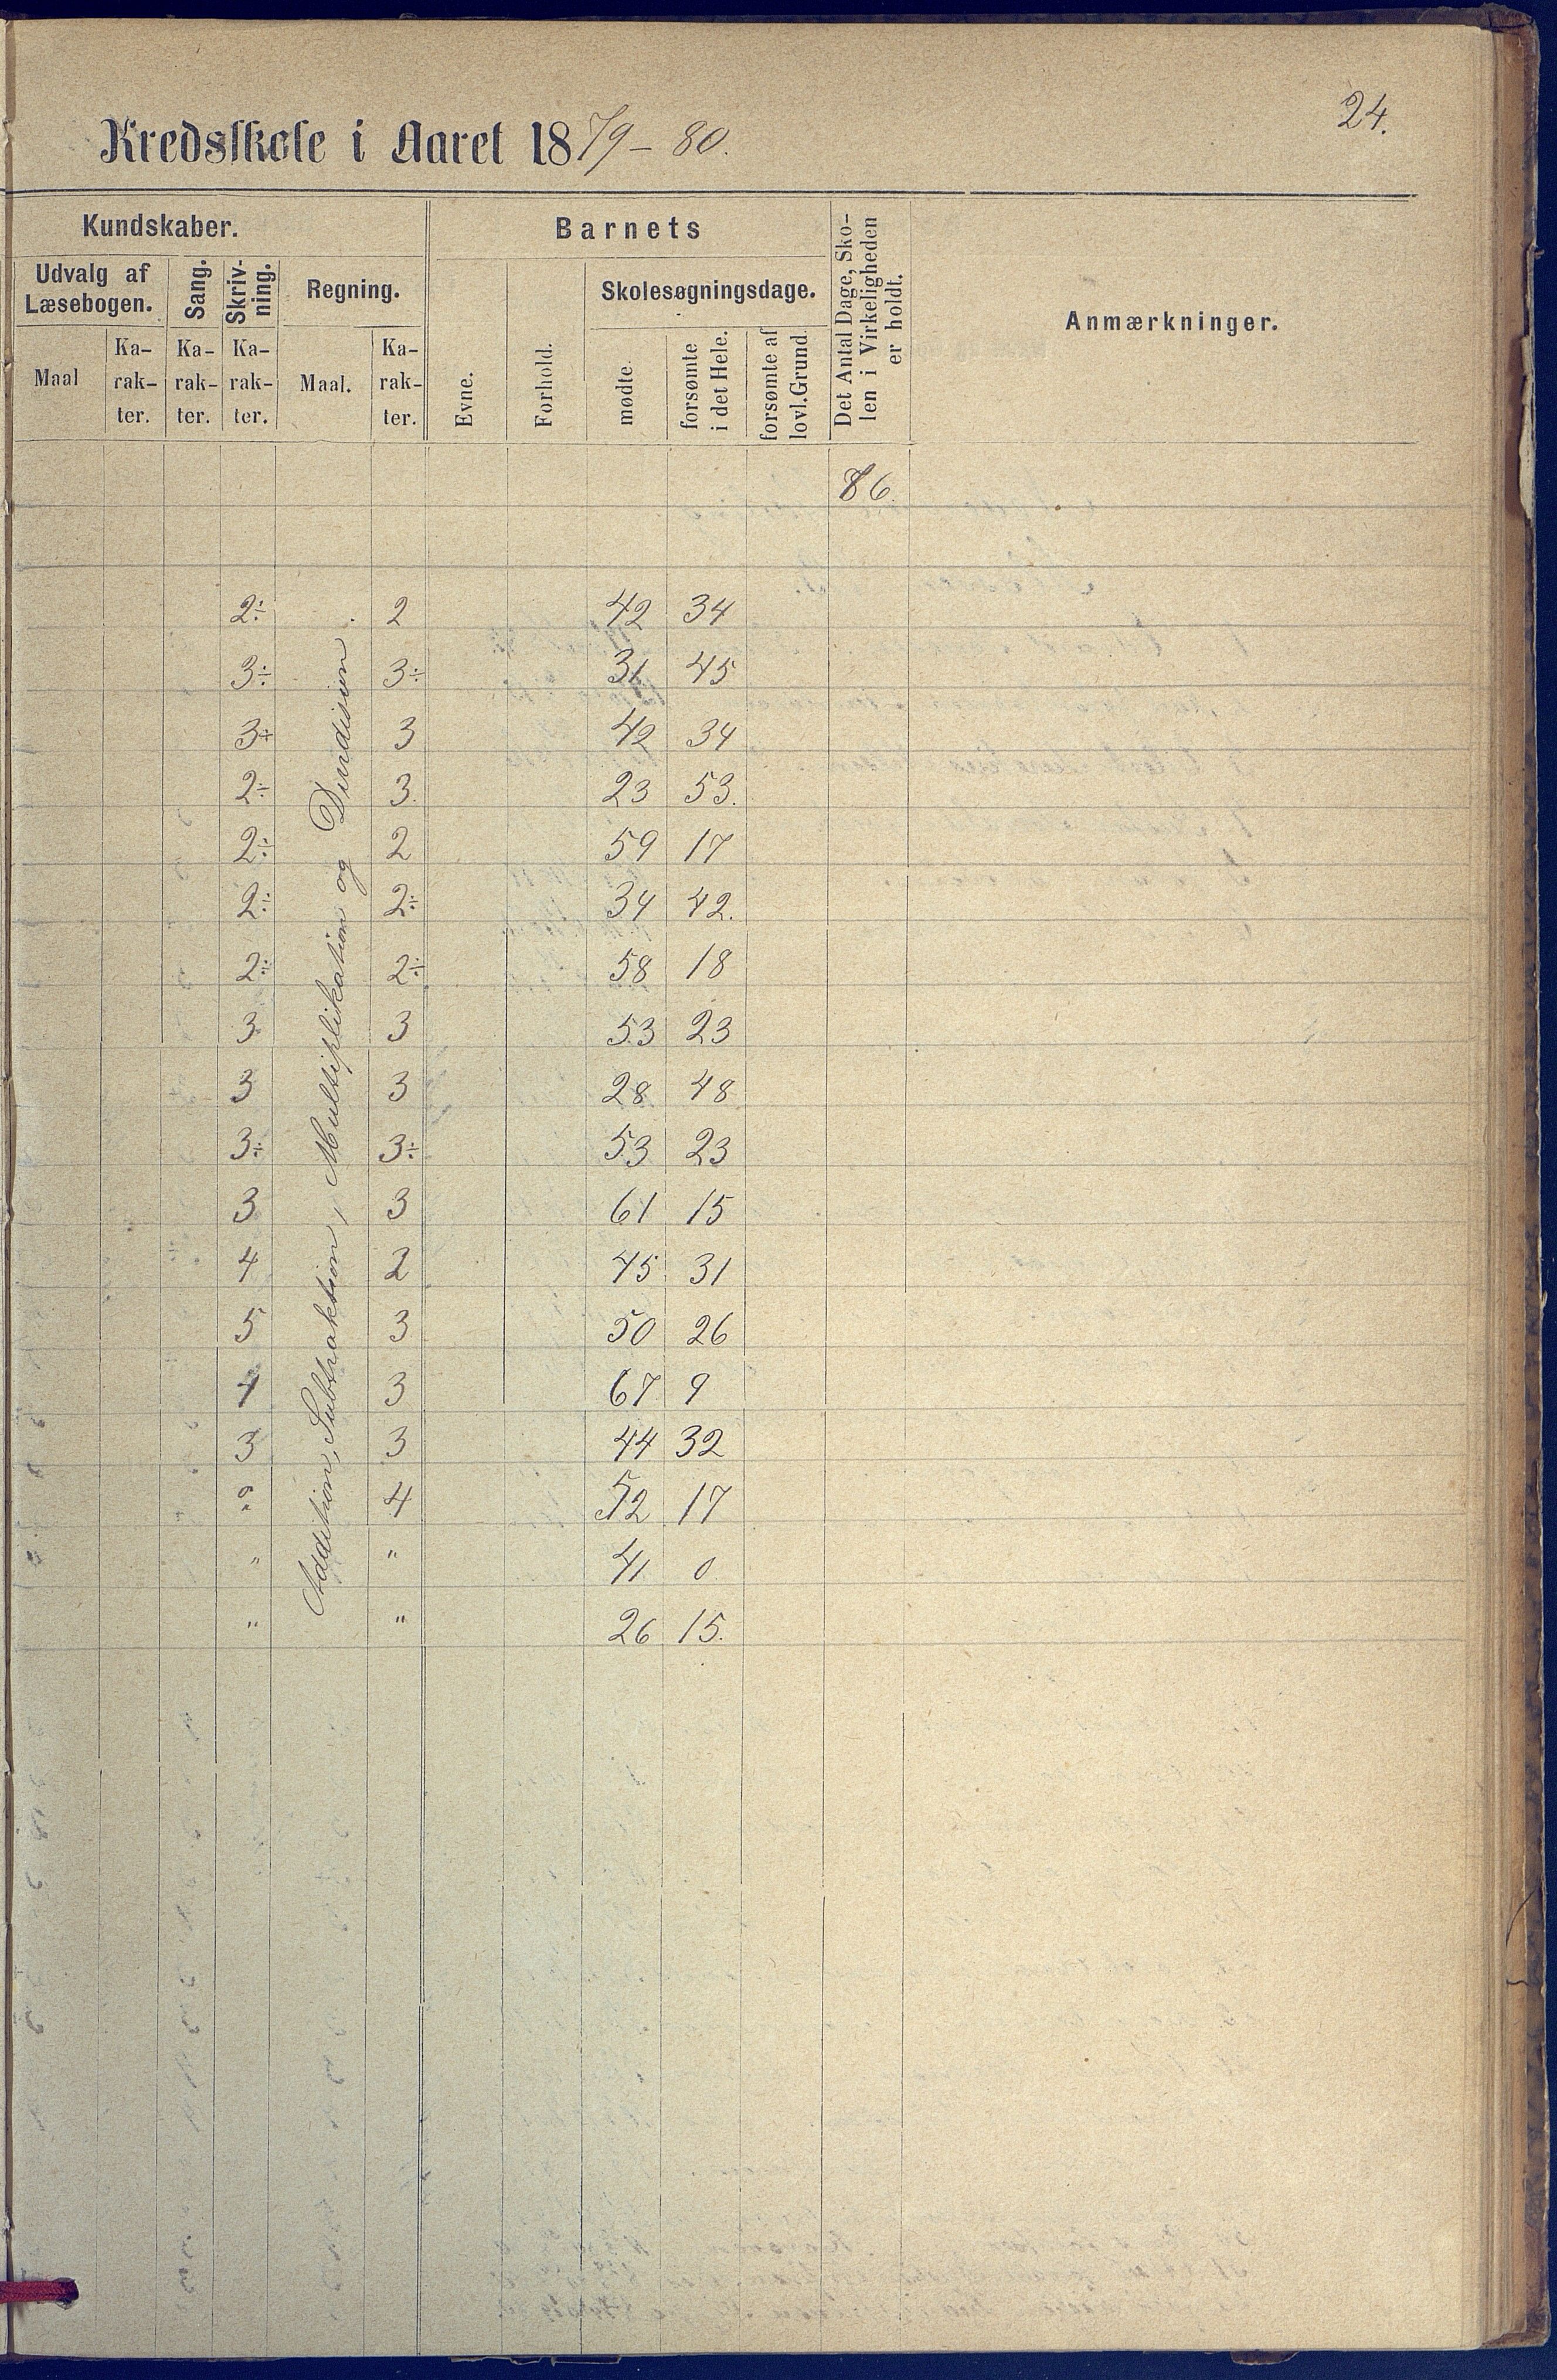 24.
Kredsskole i Aaret 1879-80.
Kundskaber.
Barnets
Det Antal Dage, Skolen i Virkeligheden er holdt.
Anmærkninger.
Udvalg af Læsebogen.
Sang.
Skrivning.
Regning.
Evne.
Forhold.
Skolesøgningsdage.
Maal
Karakter.
Karakter.
Karakter.
Maal.
Karakter.
mødte.
forsømte i det Hele.
forsømte af lovl. Grund
76.
Addition, Subtraktion, Multiplikation og Dividision
2÷ 2 42 34
3÷ 3÷ 31 45
3+ 3 42 34
2÷ 3. 23 53.
2÷ 2 59 17
2÷ 2÷ 34 42.
2÷ 2÷ 58 18
3 3 53 23
3 3 28 48
3÷ 3÷ 53 23
3 3 61 15
4 2 45 31
5 3 50 26
4 3 67 9
3 3 44 32
4 52 17
" " 41 0
" " 26 15.